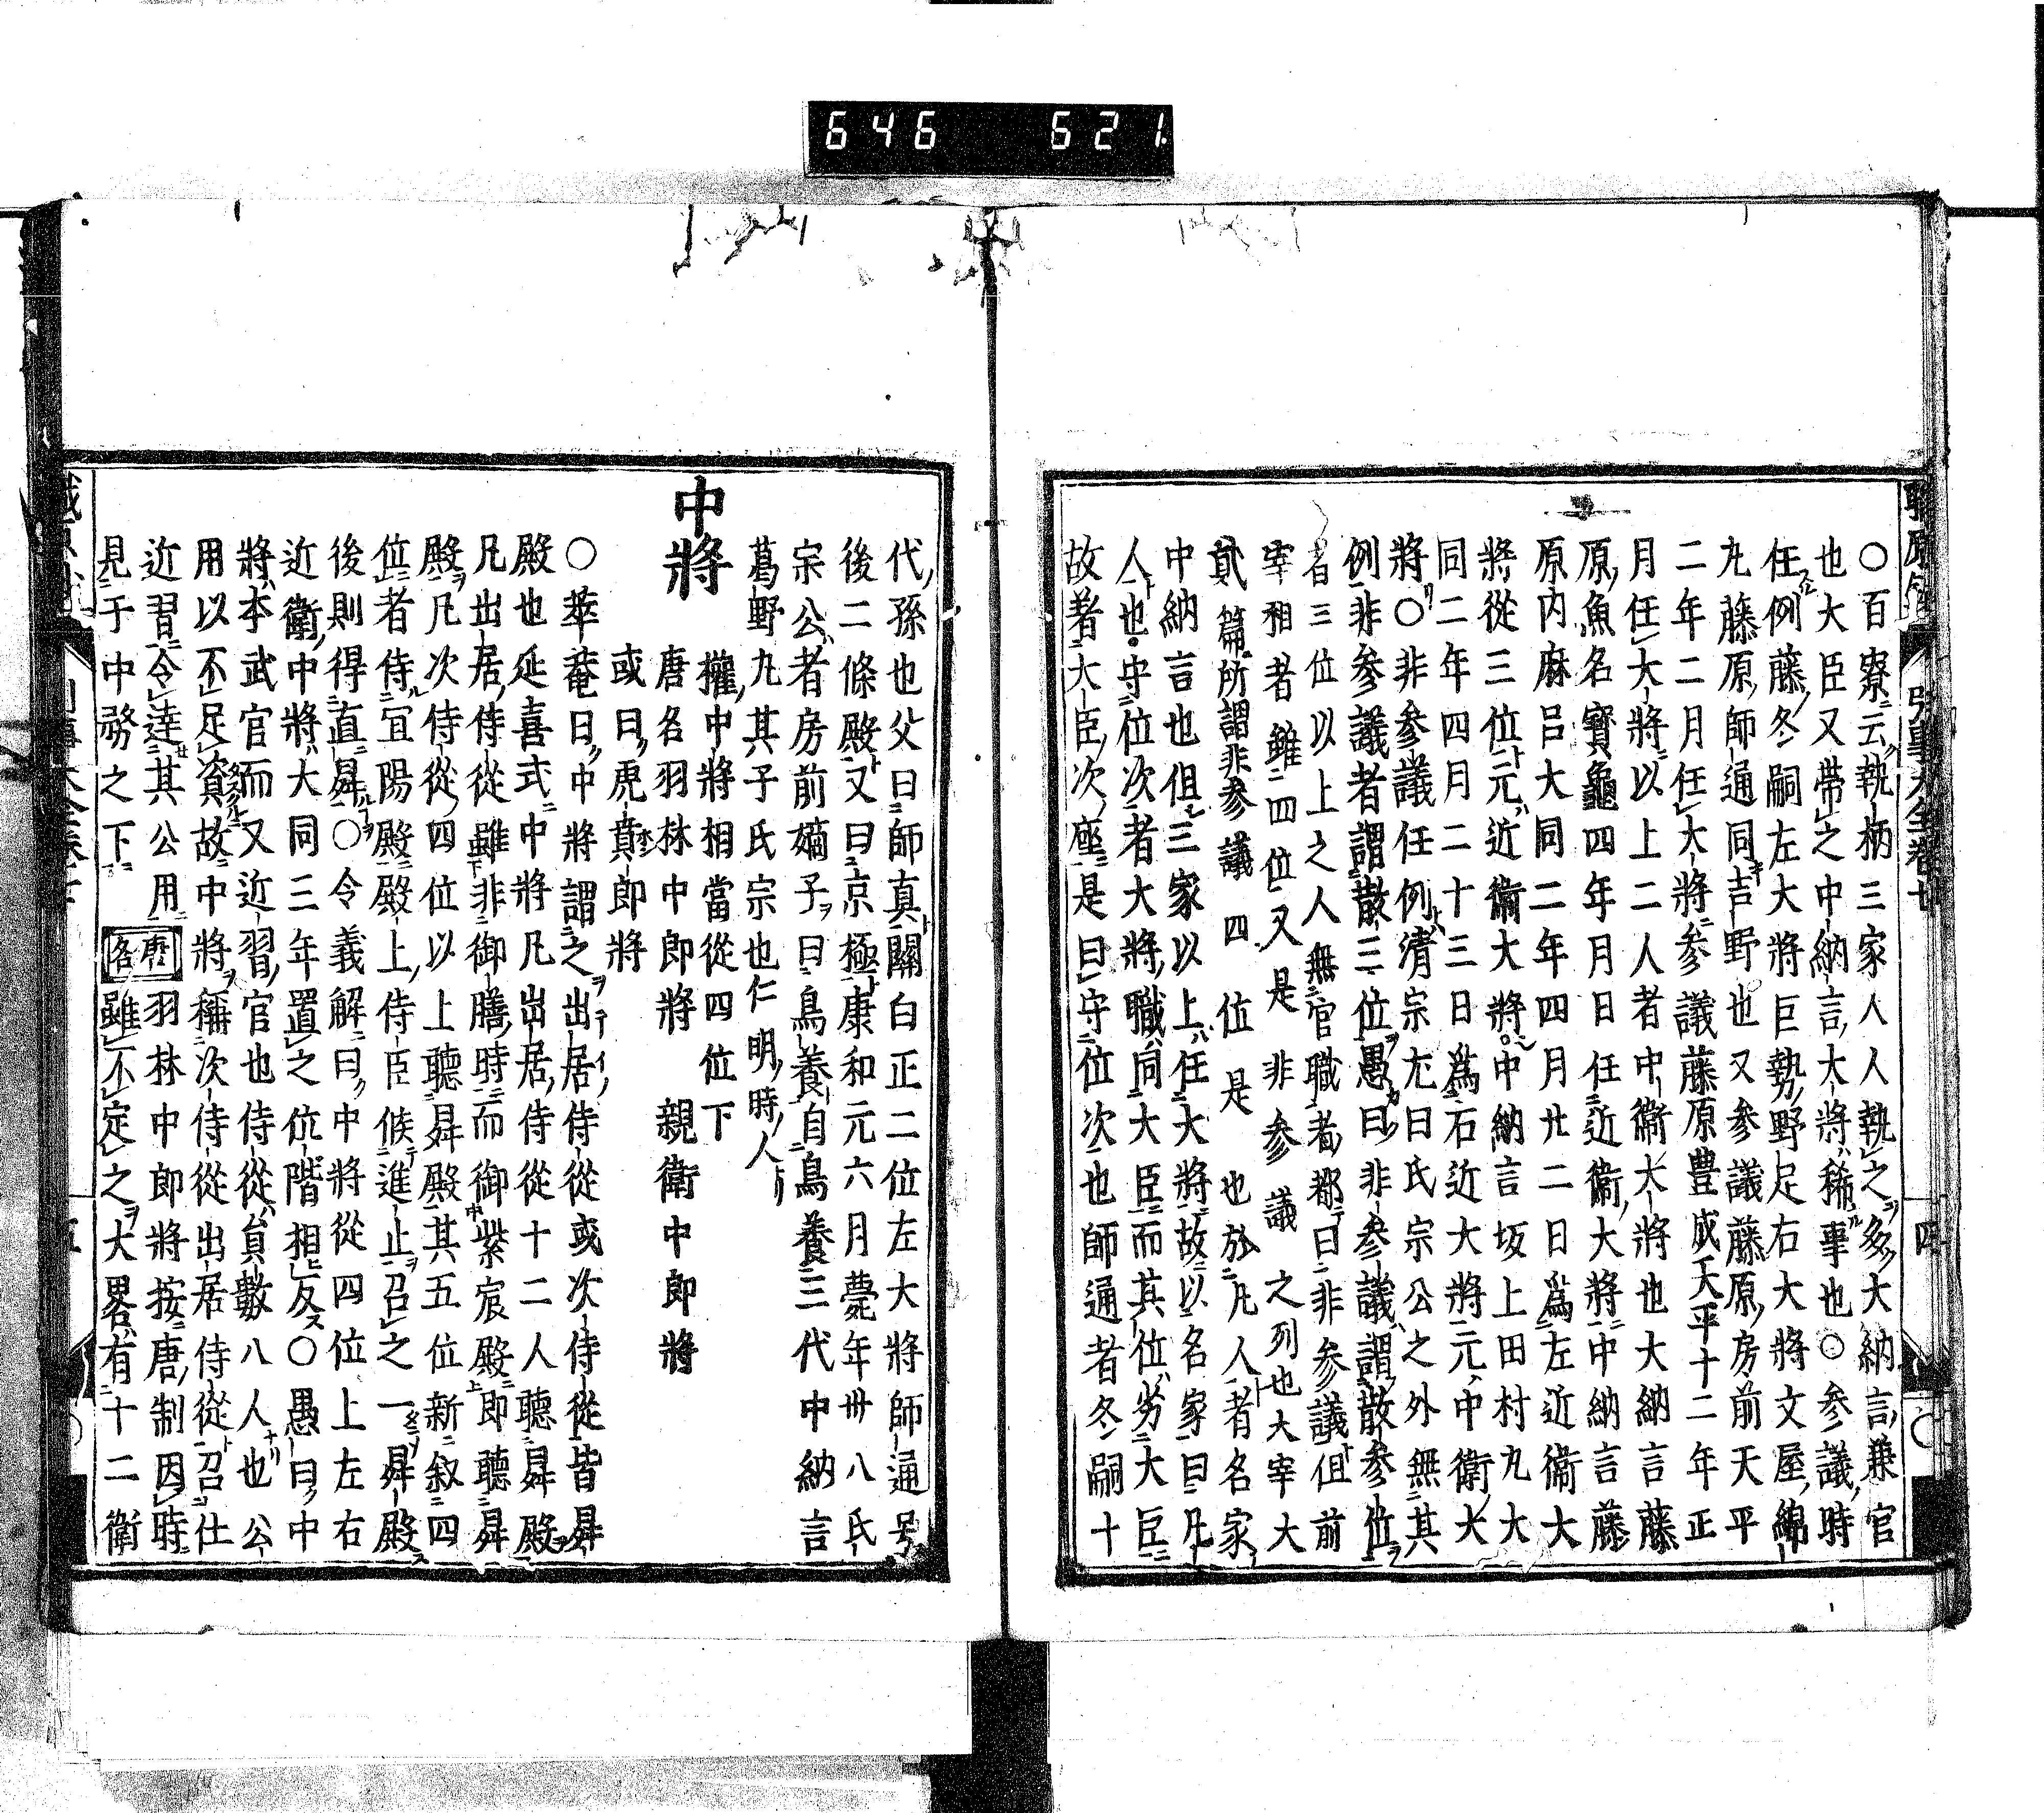 646 621
職原鈔 引事大全卷七 四
○百寮云執柄三家人人執之多大納言兼官
也大臣又帶之中納言大將稀事也○參議時
任例藤冬嗣左大將巨勢野足右大將文屋綿
丸藤原師通同吉野也又參議藤原房前天平
二年二月任大將參議藤原豊成天平十二年正
月任大將以上二人者中衛大將也大納言藤
原魚名寶龜四年月日任近衛大將中納言藤
原内麻呂大同二年四月廿二日爲左近衛大
將從三位元近衛大將中納言坂上田村丸大
同二年四月二十三日爲右近大將元中衛大
將○非參議任例清宗尢曰氏宗公之外無其
例非參議者謂散三位愚曰非參議謂散參位
者三位以上之人無官職者都曰非參議伹前
宰相者雖四位又是非參議之列也大宰大
貳篇所謂非參議四位是也於凡人者名家
中納言也伹三家以上任大將故以名家曰凡
人也守位次者大將職同大臣而其位劣大臣
故者大臣次座是曰守位次也師通者冬嗣十
代孫也父曰師真關白正二位左大將師通号
後二條殿又曰京極康和元六月薨年卅八氏
宗公者房前嫡子曰鳥養自鳥養三代中納言
葛野丸其子氏宗也仁明時人
中將
權中將相當從四位下
唐名羽林中郎將 親衛中郎將
或曰虎賁郎將
○華菴曰中將謂之出居侍從或次侍從皆昇
殿也延喜式中將凡出居侍從十二人聽昇殿
凡出居侍從雖非御膳時而御紫宸殿即聽昇
殿凡次侍從四位以上聽昇殿其五位新叙四
位者侍宜陽殿殿上侍臣候進止召之一昇殿
後則得直昇○令義解曰中將從四位上左右
近衛中將大同三年置之位階相反○愚曰中
將本武官而又近習官也侍從員數八人也公
用以不足資故中將稱次侍從出居侍從召仕
近習令達其公用 羽林中郎將按唐制因時
見于中務之下 唐名 雖不定之大畧有十二衛